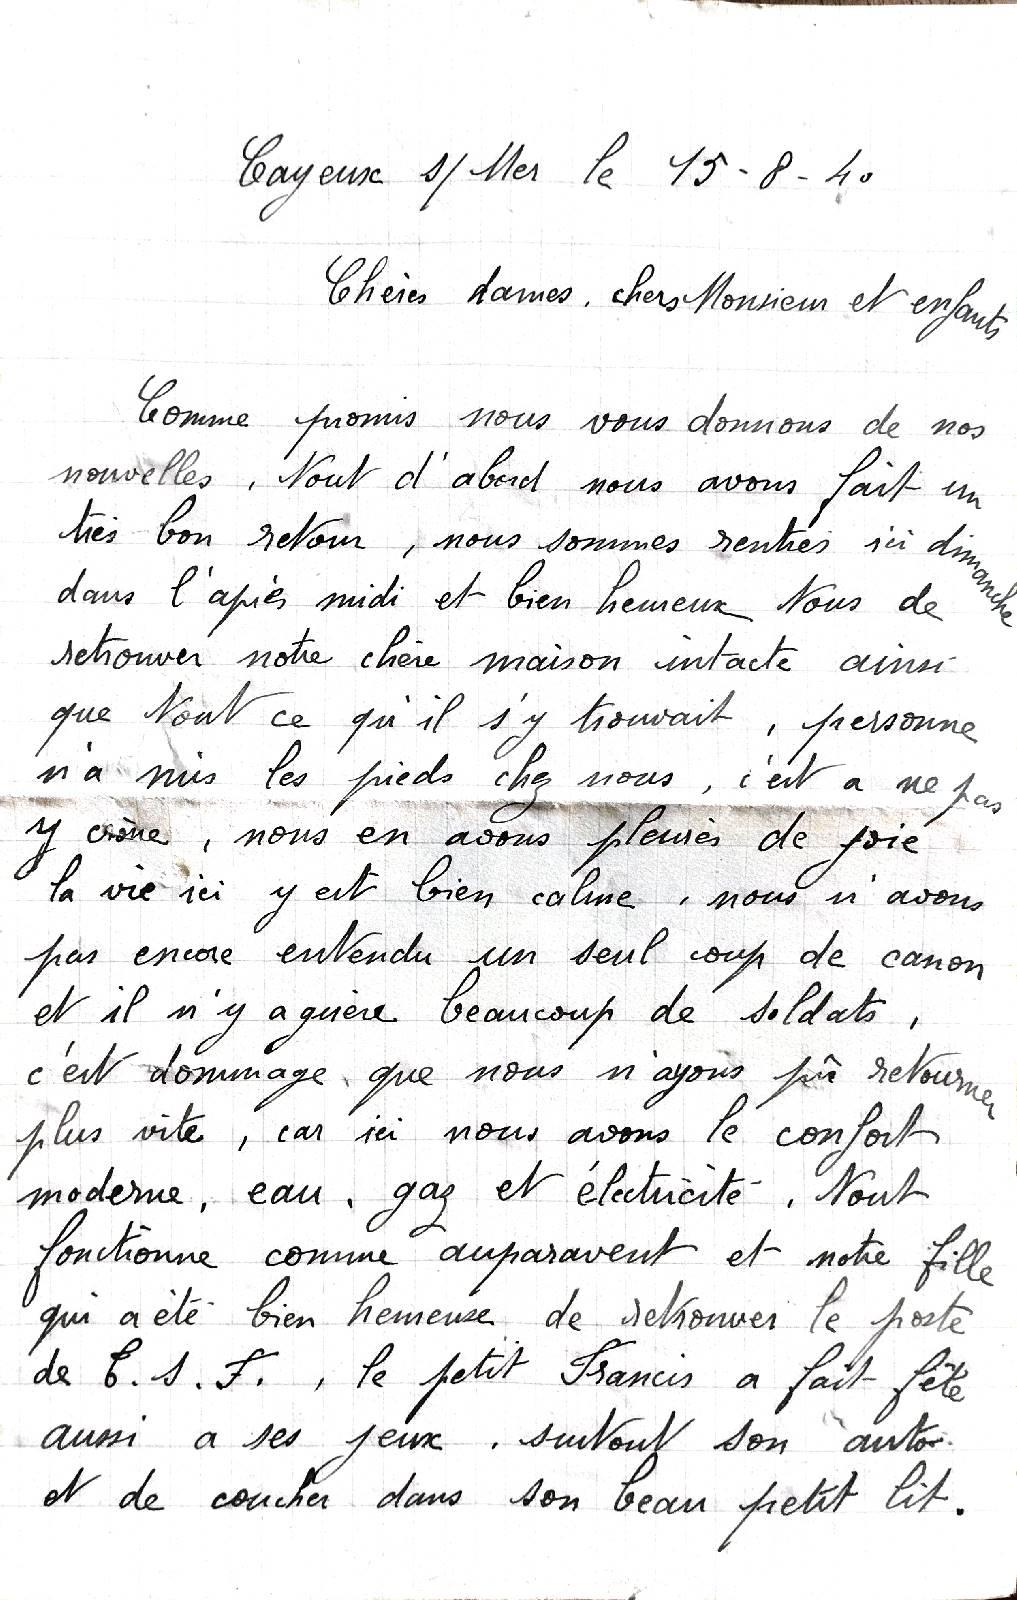 Cayeux s/ Mer le 15-8-40
Chères dames, chers Monsieur et enfants
Comme promis nous vous donnons de nos
nouvelles, Tout d'abord nous avons fait un
très bon retour, nous sommes rentrés ici dimanche
dans l'après midi et bien heureux Tous de
retrouver notre chère maison intacte ainsi
que Tout ce qu'il s'y trouvait, personne
n'a mis les pieds chez nous, c'est a ne pas
y croire, nous en avons pleurés de joie
la vie ici y est bien calme, nous n'avons
pas encore entendu un seul coup de canon
et il n'y a guère beaucoup de soldats,
c'est dommage que nous n'ayons pû retourner
plus vite, car ici nous avons le confort
moderne, eau, gaz et électricité, Tout
fonctionne comme auparavent et notre fille
qui a été bien heureuse de retrouver le poste
de T.S.F., le petit Francis a fait fête
aussi a ses jeux, surtout son auto
et de coucher dans son beau petit lit.